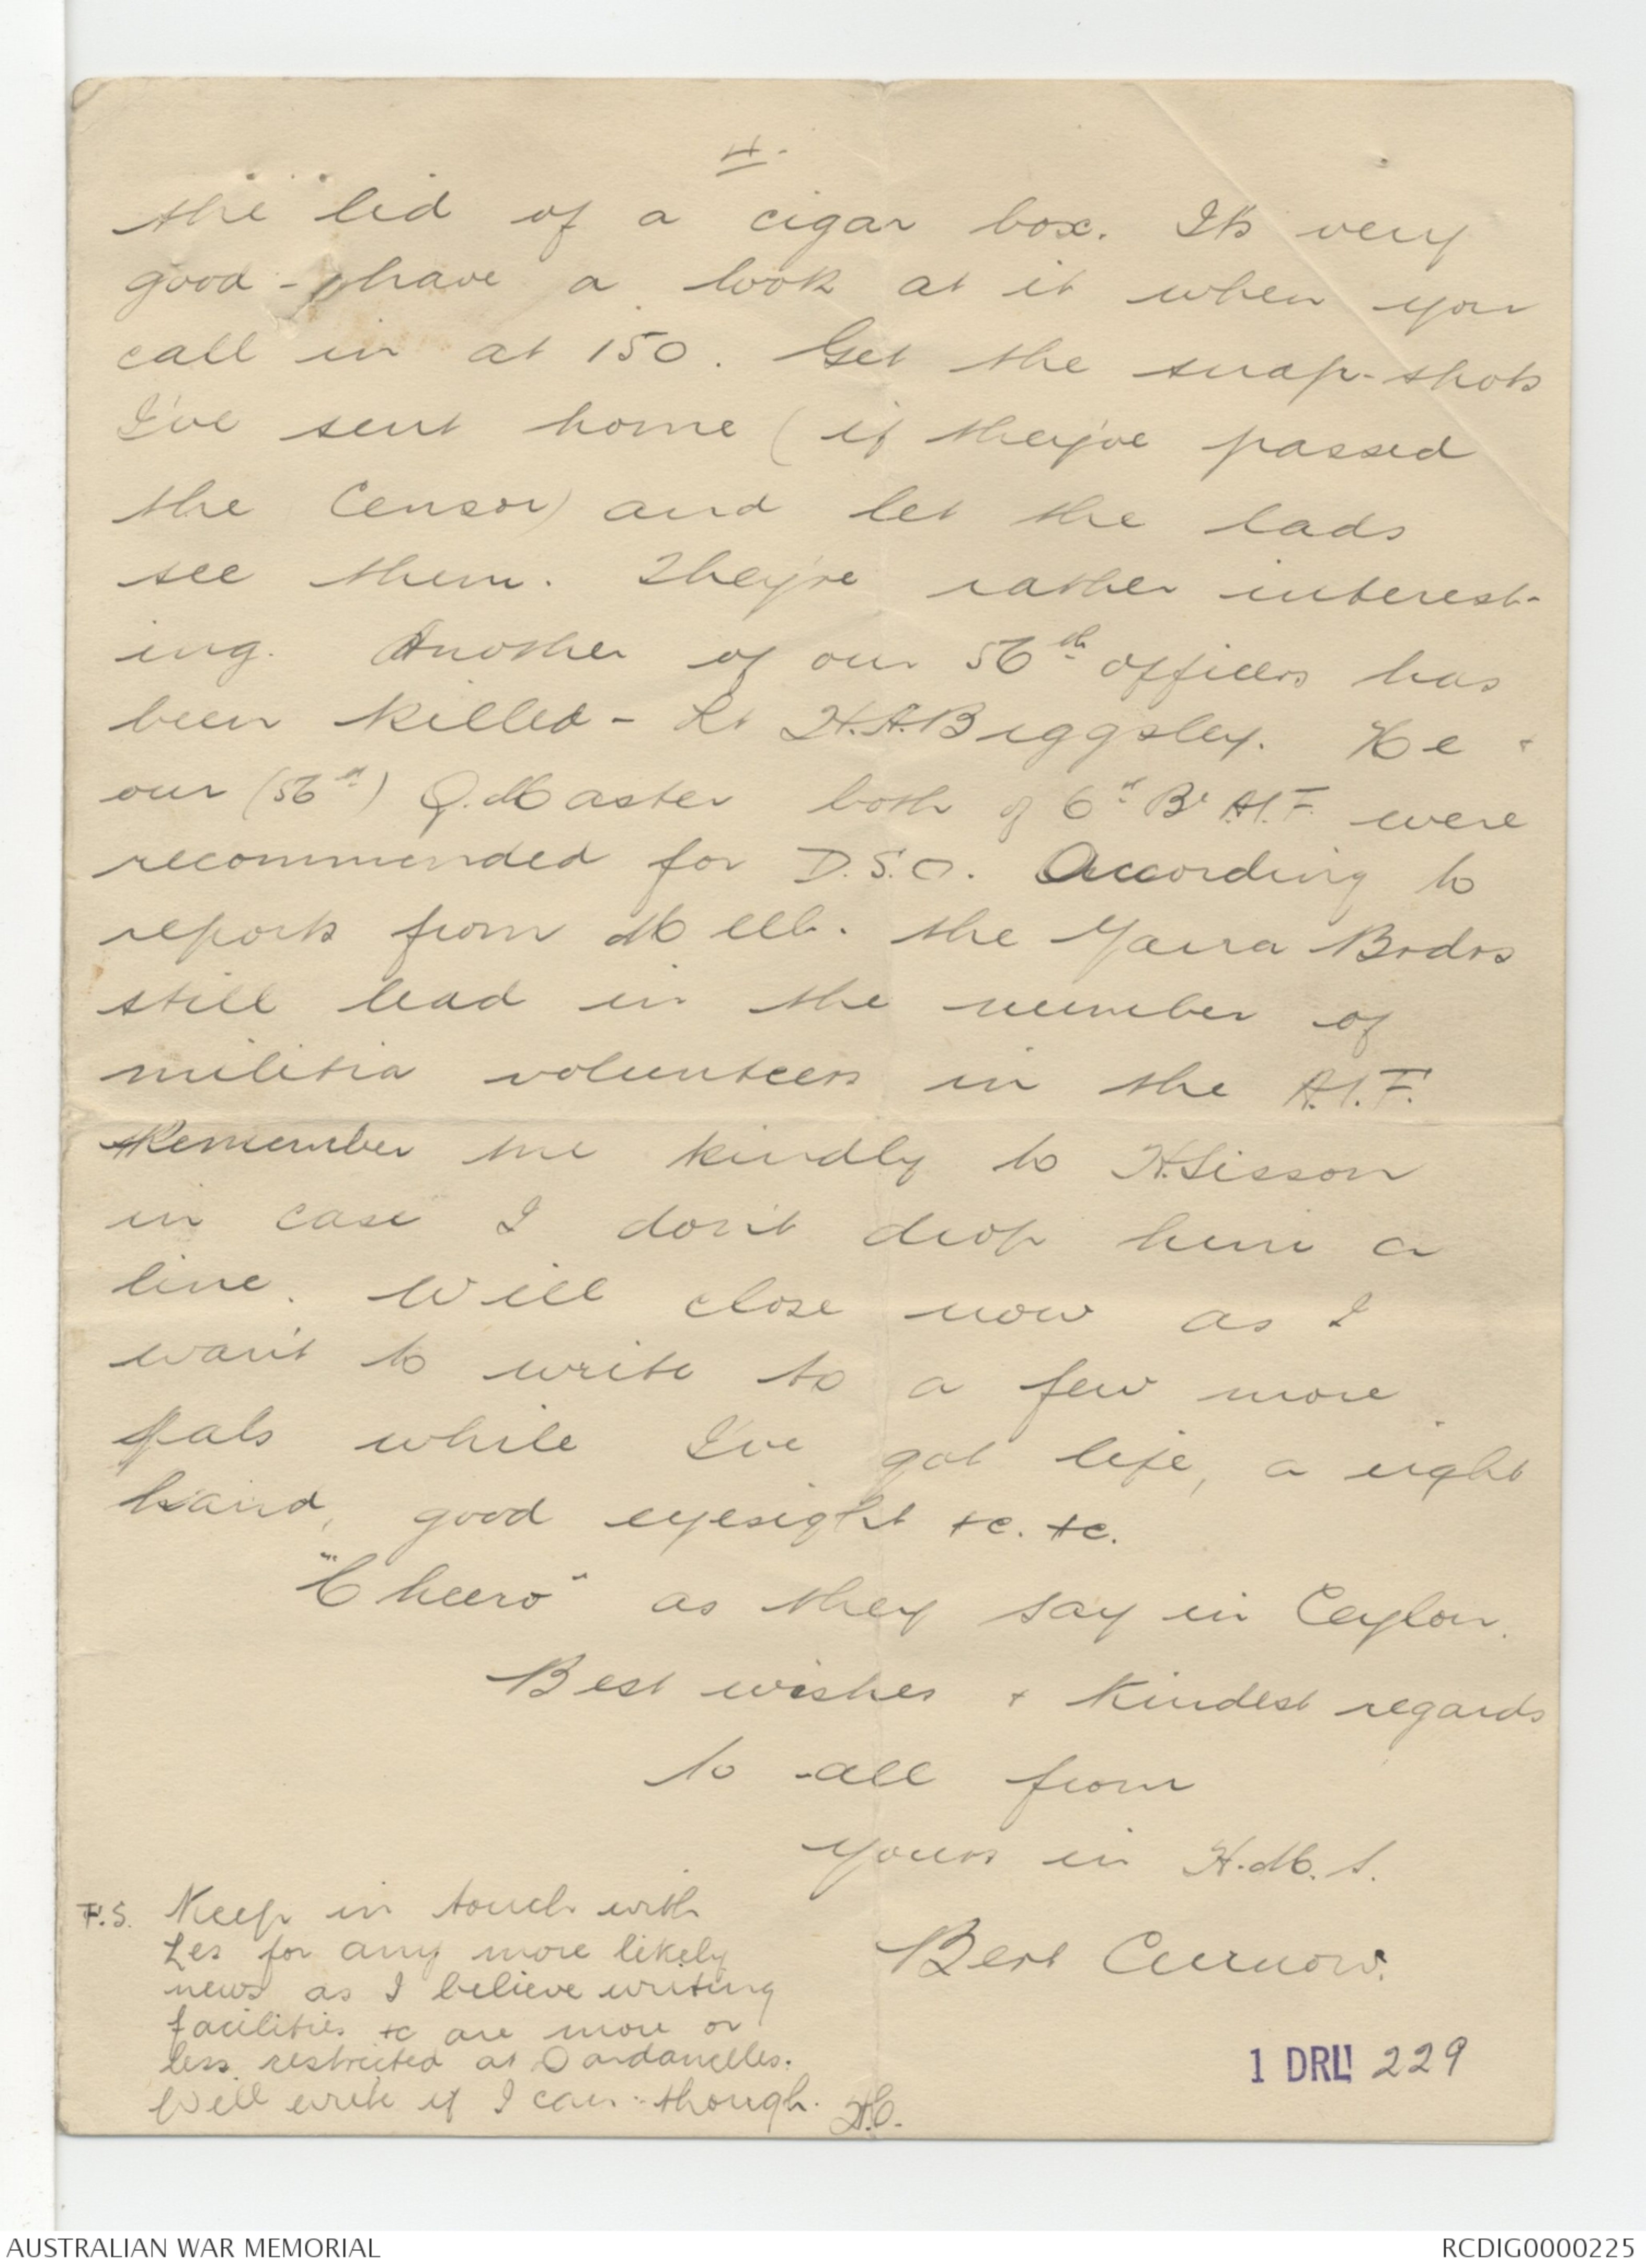 4.
the lid of a cigar box. It's very
good - have a look at it when you
call in at 150. Get the snap-shots
I've sent home (if they've passed
the Censor) and let the lads
see them. They're rather interest-
ing. Another of our 56th officers has
been killed - Lt H.A. Biggsley. He +
our (56th) Q.Master both of 6th Bn A.I.F. were
recommended for D.S.O. According to
reports from Melb. the Yarra Bodrs
still lead in the number of
militia volunteers in the A.I.F.
Remember me kindly to H. Sisson
in case I don't drop him a
line. Will close now as I
want to write to a few more
pals while I've got life, a right
hand, good eyesight +c. +c.
"Cheero" as they say in Ceylon.
Best wishes + Kindest regards
to all from
yours in H.M.S.
Bert Curnow.
P.S. Keep in touch with
Les for any more likely
news as I believe writing
facilities +c are more or
less restricted at Dardanelles.
Will write if I can though. H.C.
1 DRL 229
AUSTRALIAN WAR MEMORIAL
RCDIG0000225